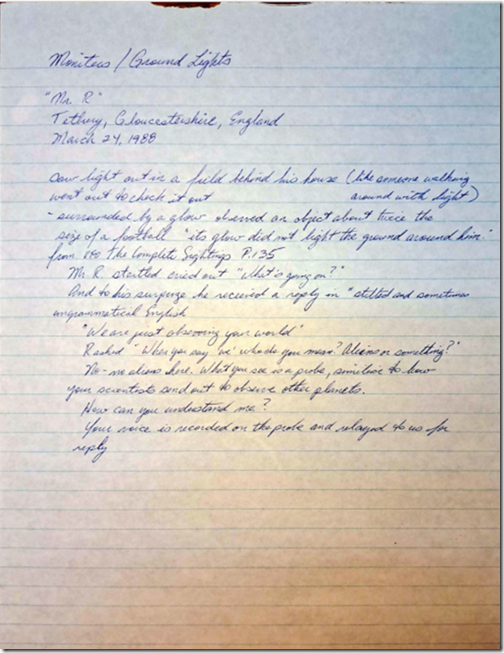 Monitors / Ground Lights
"Mr. R"
Tetbury, Gloucestershire, England
March 24, 1988
saw light out in a field behind his house (like someone walking
went out to check it out around with light)
- surrounded by a glow observed an object about twice the
size of a football "its glow did not light the ground around him."
from UFO the Complete Sightings P.135
Mr. R startled cried out "What's going on?"
And to his surprize he received a reply in "stilted and sometimes
ungrammatical English
"We are just observing your world"
R asked "When you say 'we' who do you mean? Aliens or something?"
No - no aliens here. What you see is a probe, similar to how
your scientists send out to observe other planets.
How can you understand me?
Your voice is recorded on the probe and relayed to us for
reply